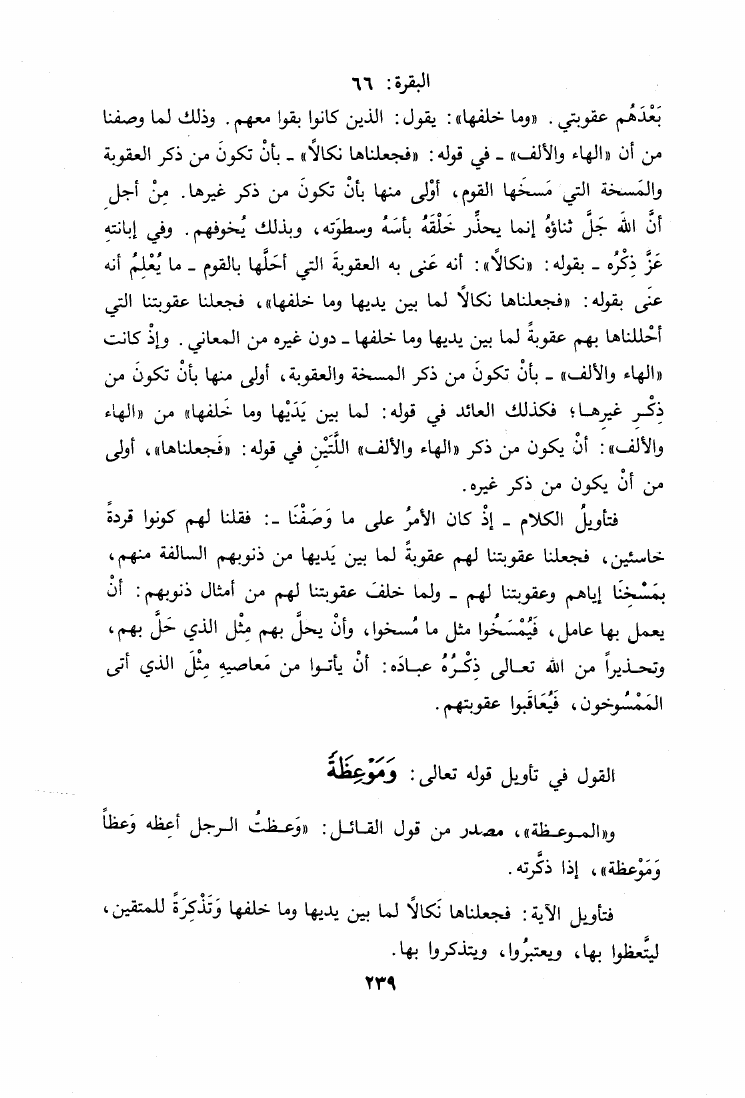 البقرة: ٦٦
بَعْدَهُم عقوبتي. «وما خلفها»: يقول: الذين كانوا بقوا معهم. وذلك لما وصفنا
من أن «الهاء والألف» ـ في قوله: «فجعلناها نكالًا» ـ بأنْ تكونَ من ذكر العقوبة
والمَسخة التي مَسخَها القوم، أوْلى منها بأنْ تكونَ من ذكر غيرها. مِنْ أجل
أنَّ اللهَ جَلَّ ثناؤهُ إنما يحذِّر خَلْقَهُ بأسَهُ وسطوَته، وبذلك يُخوفهم. وفي إبانتهِ
عَزَّ ذِكْرُه ـ بقوله: «نكالًا»: أنه عَنى به العقوبةَ التي أحَلَّها بالقوم ـ ما يُعْلِمُ أنه
عنَى بقوله: «فجعلناها نكالًا لما بين يديها وما خلفها»، فجعلنا عقوبتنا التي
أحْللناها بهم عقوبةً لما بين يديها وما خلفها ـ دون غيره من المعاني. وإذْ كانت
«الهاء والألف» ـ بأنْ تكونَ من ذكر المسخة والعقوبة، أولى منها بأنْ تكونَ من
ذِكْرِ غيرها؛ فكذلك العائد في قوله: لما بين يَدَيْها وما خَلفها» من «الهاء
والألف»: أنْ يكون من ذكر «الهاء والألف» اللَّتَيْن في قوله: «فَجعلناها»، أولى
من أنْ يكون من ذكر غيره.
فتأويلُ الكلام ـ إذْ كان الأمرُ على ما وَصَفْنَا ـ: فقلنا لهم كونوا قردةً
خاسئين، فجعلنا عقوبتنا لهم عقوبةً لما بين يَديها من ذنوبهم السالفة منهم،
بمَسْخِنَا إياهم وعقوبتنا لهم ـ ولما خلفَ عقوبتنا لهم من أمثال ذنوبهم: أنْ
يعمل بها عامل، فَيُمْسَخُوا مثل ما مُسخوا، وأنْ يحلَّ بهم مِثْل الذي حَلَّ بهم،
وتحـذيراً من الله تعـالى ذِكْـرُهُ عبـادَه: أنْ يأتـوا من مَعاصيهِ مِثْلَ الذي أتى
المَمْسُوخون، فَيُعَاقَبوا عقوبتهم.
القول في تأويل قوله تعالى: وَمَوْعِظَةً
و«المـوعـظة»، مصدر من قول القـائـل: «وَعـظتُ الـرجل أعِظه وَعظاً
وَمَوْعظة»، إذا ذكَّرته.
فتأويل الآية: فجعلناها نَكالًا لما بين يديها وما خلفها وَتَذْكِرَةً للمتقين،
ليتَّعظوا بها، ويعتبرُوا، ويتذكروا بها.
٢٣٩